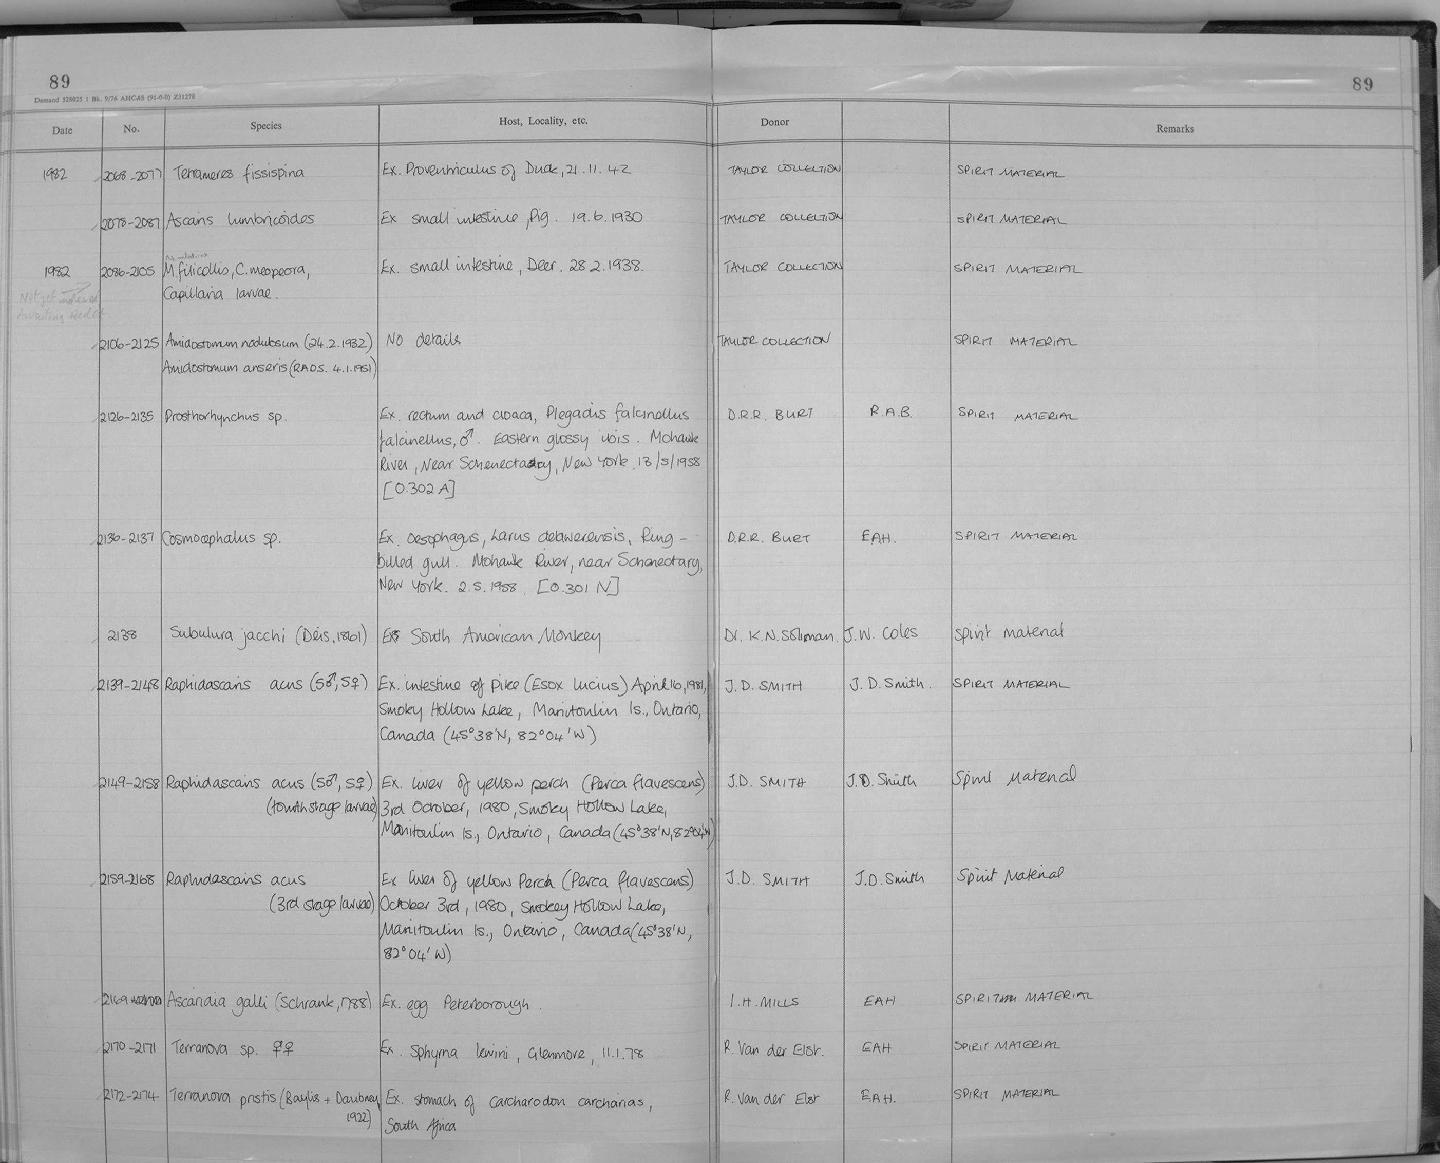 89
89
Demand 528025 1 Bk. 9/76 AHCAS (91-0-0) Z31278
Date No. Species Host, Locality, etc. Donor Remarks
1982 2068-2077 Tetrameres fissispina Ex. Proventriculus of Duck, 21.11.42 TAYLOR COLLECTION SPIRIT MATERIAL
2078-2087 Ascaris lumbricoides Ex small intestine, Pig. 19.6.1930 TAYLOR COLLECTION SPIRIT MATERIAL
1982 2086-2105 M. filicollis, C. meopeora, Ex. small intestine, Deer. 28.2.1938. TAYLOR COLLECTION SPIRIT MATERIAL
Capillaria larvae.
Not yet indexed
Awaiting
2106-2125 Amidostomum nodulosum (24.2.1932) No details TAYLOR COLLECTION SPIRIT MATERIAL
Amidostomum anseris (R.A.O.S. 4.1.1951)
2126-2135 Prosthorhynchus sp. Ex. rectum and cloaca, Plegadis falcinellus D.R.R. BURT R.A.B. SPIRIT MATERIAL
falcinellus, ♂. Eastern glossy ibis. Mohawk
River, Near Schenectady, New York. 13/5/1958
[0.302 A]
2136-2137 Cosmocephalus sp. Ex. oesophagus, Larus delawerensis, Ring- D.R.R. BURT EAH. SPIRIT MATERIAL
billed gull. Mohawk River, near Schenectary,
New York. 2.5.1958. [0.301 N]
2138 Subulura jacchi (Deis, 1861) Ex South American Monkey Dr. K.N. Soliman. J.W. Coles Spirit material
2139-2148 Raphidascaris acus (5♂, 5♀) Ex. intestine of Pike (Esox lucius) April 16, 1981, J.D. SMITH J.D. Smith. SPIRIT MATERIAL
Smoky Hollow Lake, Manitoulin Is., Ontario,
Canada (45°38'N, 82°04'W)
2149-2158 Raphidascaris acus (5♂, 5♀) Ex. liver of yellow perch (Perca flavescens) J.D. SMITH J.D. Smith Spirit Material
(fourth stage larvae) 3rd October, 1980, Smoky Hollow Lake,
Manitoulin Is., Ontario, Canada (45°38'N, 82°04'W)
2159-2168 Raphidascaris acus Ex liver of yellow Perch (Perca flavescens) J.D. SMITH J.D. Smith Spirit Material
(3rd stage larvae) October 3rd, 1980, Smokey Hollow Lake,
Manitoulin Is., Ontario, Canada (45°38'N,
82°04'W)
2169 Ascaridia galli (Schrank, 1788) Ex. egg Peterborough. I.H. MILLS EAH SPIRIT MATERIAL
2170-2171 Terranova sp. ♀♀ Ex. Sphyrna lewini, Glenmore, 11.1.78 R. Van der Elst. EAH SPIRIT MATERIAL
2172-2174 Terranova pristis (Baylis + Daubney, Ex. stomach of Carcharodon carcharias, R. Van der Elst EAH. SPIRIT MATERIAL
1922) South Africa